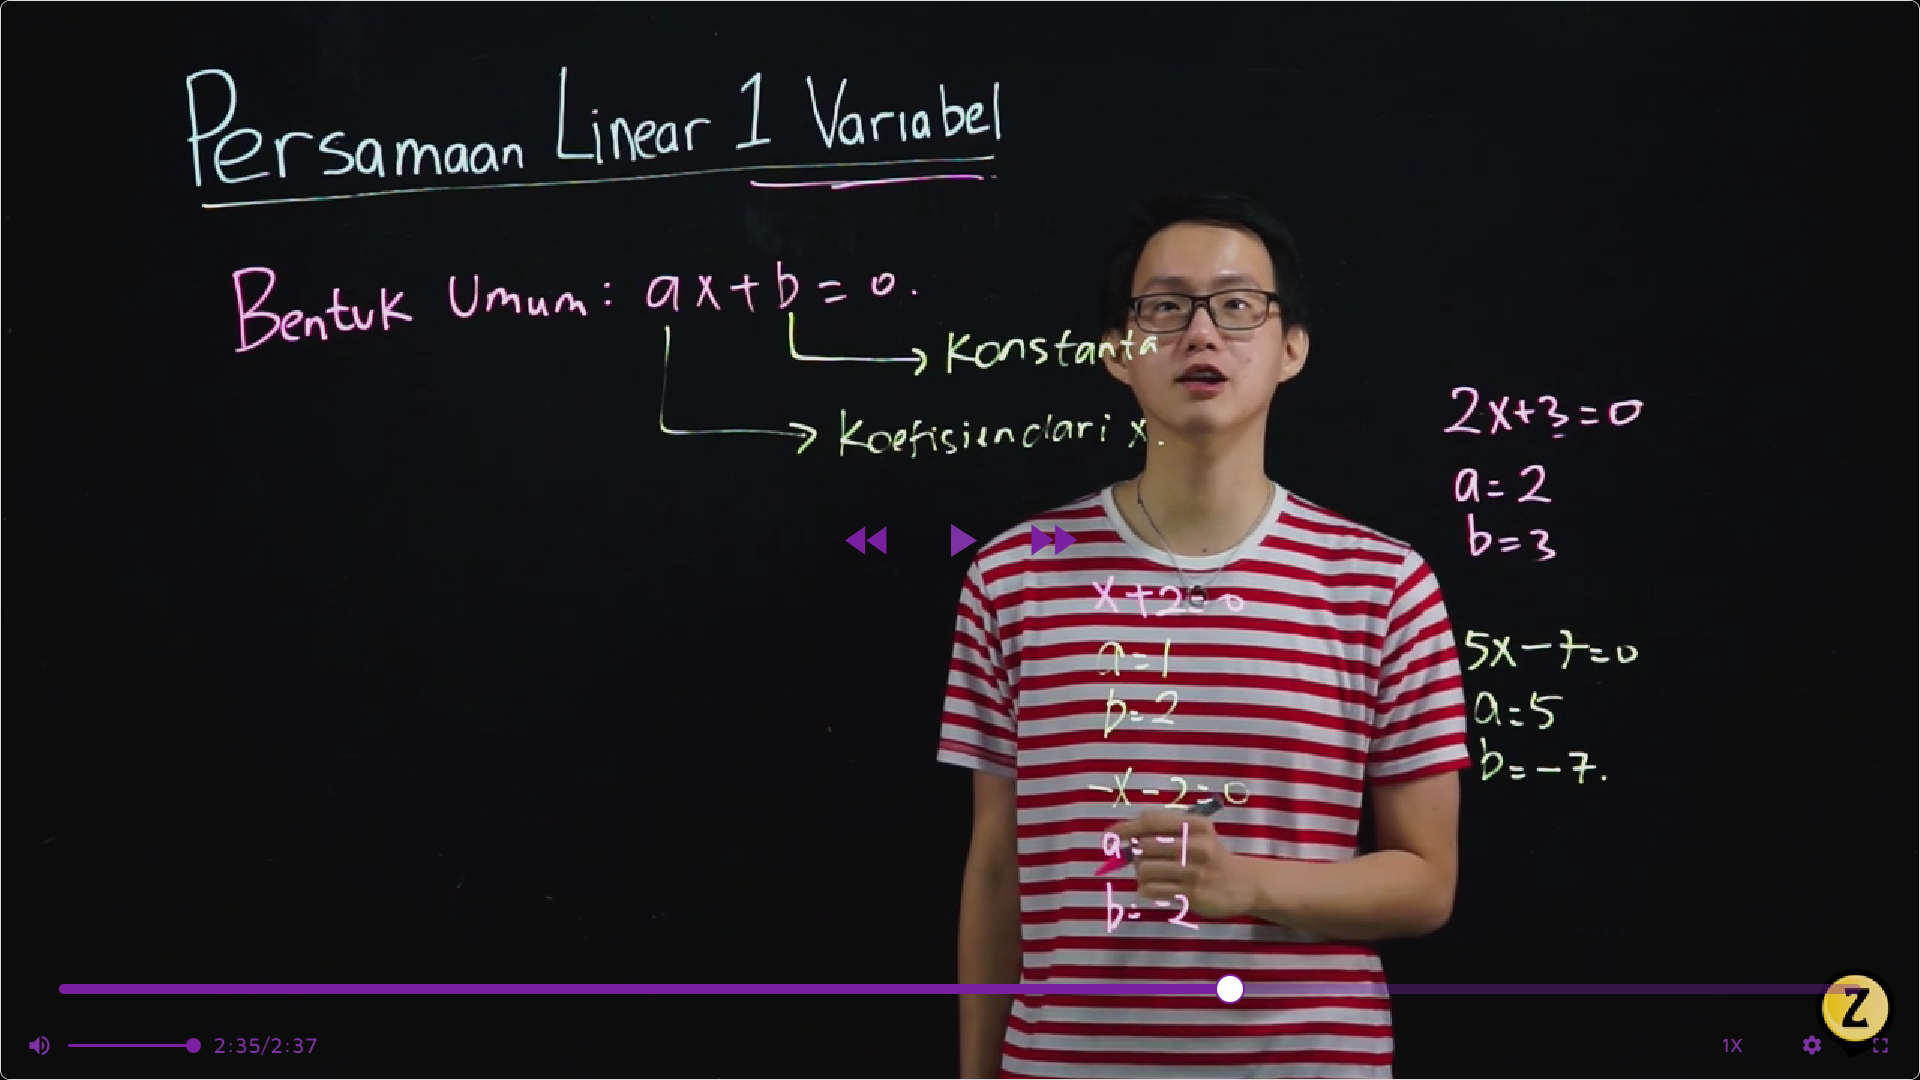 Persamaan Linear 1 Variabel
Bentuk Umum: ax+b=0.
Konstanta
Koefisien dari x.
2x+3=0
a=2
b=3
x+2=0
a=1
b=2
5x-7=0
a=5
b=-7.
-x-2=0
a=-1
b=-2
Z
2:35/2:37
1X